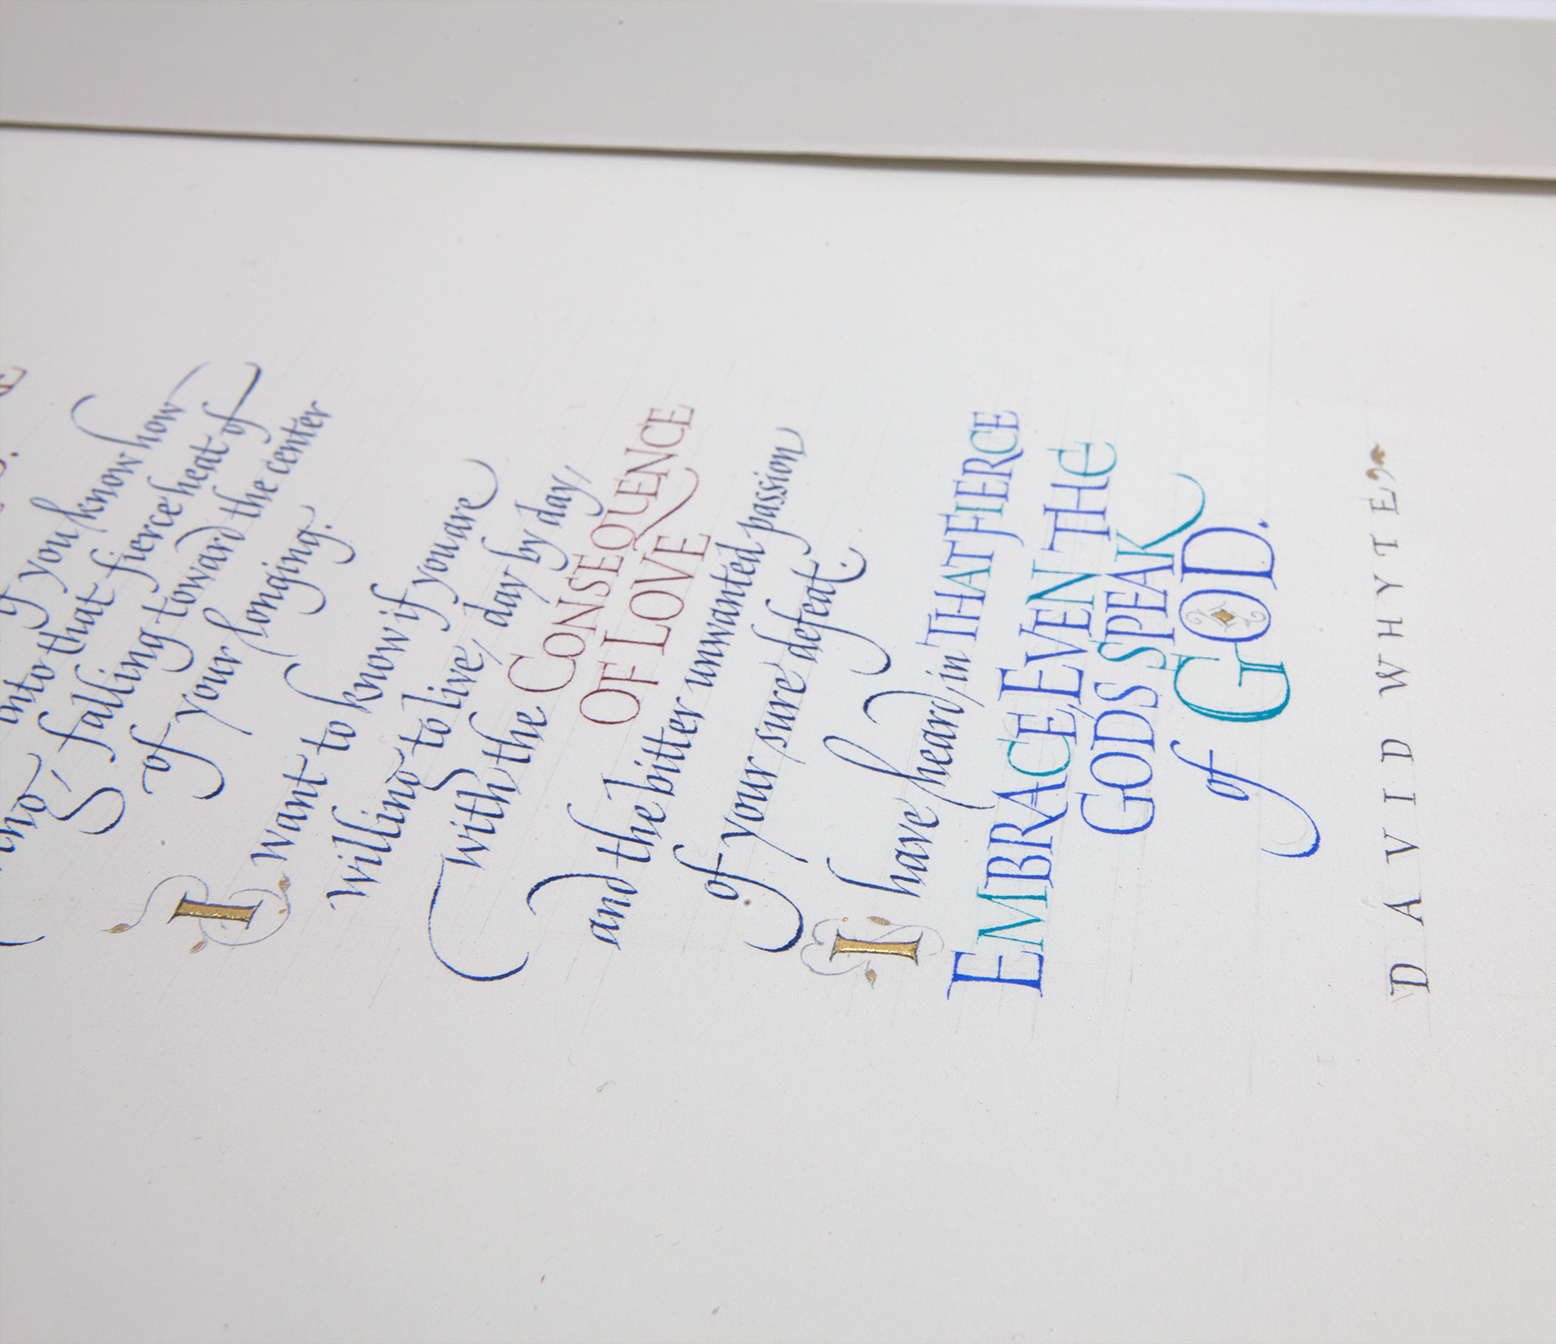 if you know how
into that fierce heat of
falling toward the center
of your longing.
I want to know if you are
willing to live, day by day,
with the CONSEQUENCE
OF LOVE
and the bitter unwanted passion
of your sure defeat.
I have heard, in THAT FIERCE
EMBRACE, EVEN THE
GODS SPEAK
of GOD.
DAVID WHYTE